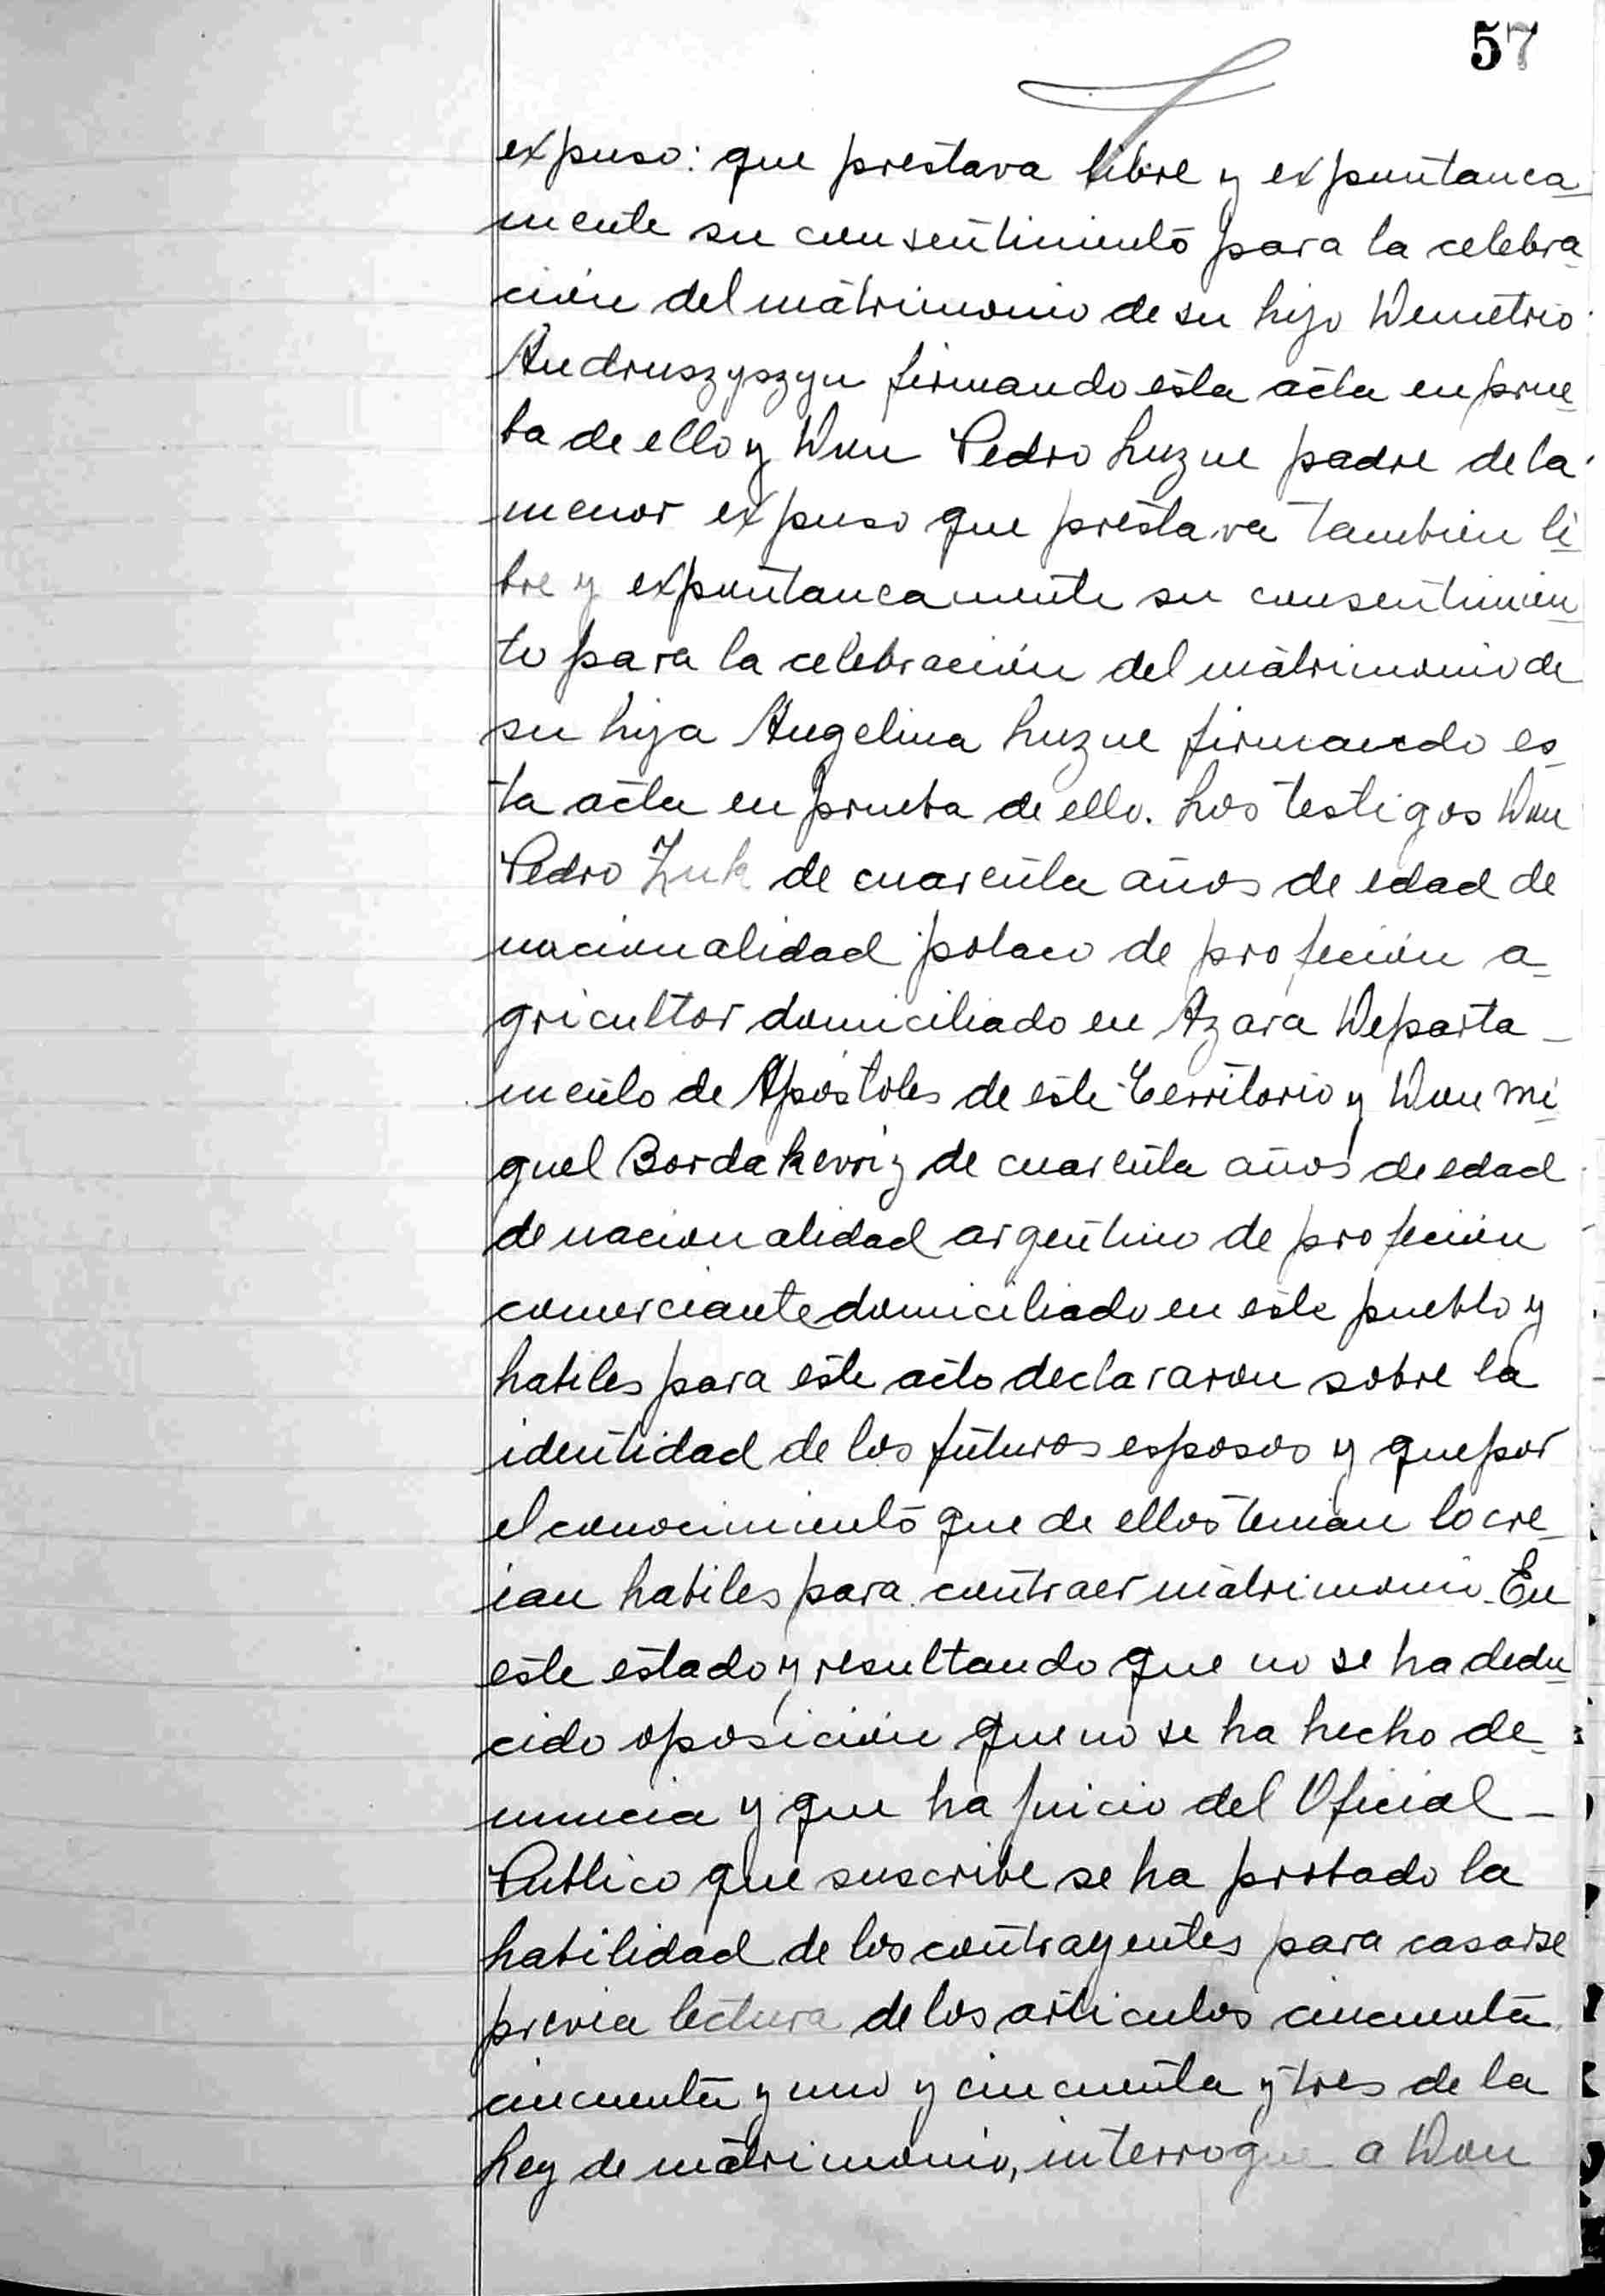 57
expuso: que prestava libre y expontanea
mente su consentimiento para la celebra
ción del matrimonio de su hijo Demetrio
Andruszyszyn firmando esta acta en prue
ba de ello y Don Pedro Luzne padre de la
menor expuso que prestava tambien li
bre y expontaneamente su consentimien
to para la celebración del matrimonio de
su hija Angelina Luzne firmando es
ta acta en prueba de ello. Los testigos Don
Pedro Zuk de cuarenta años de edad de
nacionalidad polaco de profeción a
gricultor domiciliado en Azara Departa-
mento de Apóstoles de este Territorio y Don Mi
guel Bordakevriz de cuarenta años de edad
de nacionalidad argentino de profeción
comerciante domiciliado en este pueblo y
habiles para este acto declararon sobre la
identidad de los futuros esposos y que por
el conocimiento que de ellos tenian lo cre
ian habiles para contraer matrimonio. En
este estado y resultando que no se ha dedu
cido oposición que no se ha hecho de
nuncia y que ha juicio del Oficial-
Publico que suscribe se ha probado la
habilidad de los contrayentes para casarse
previa lectura de los articulos cincuenta
cincuenta y uno y cincuenta y tres de la
Ley de matrimonio, interrogue a Don